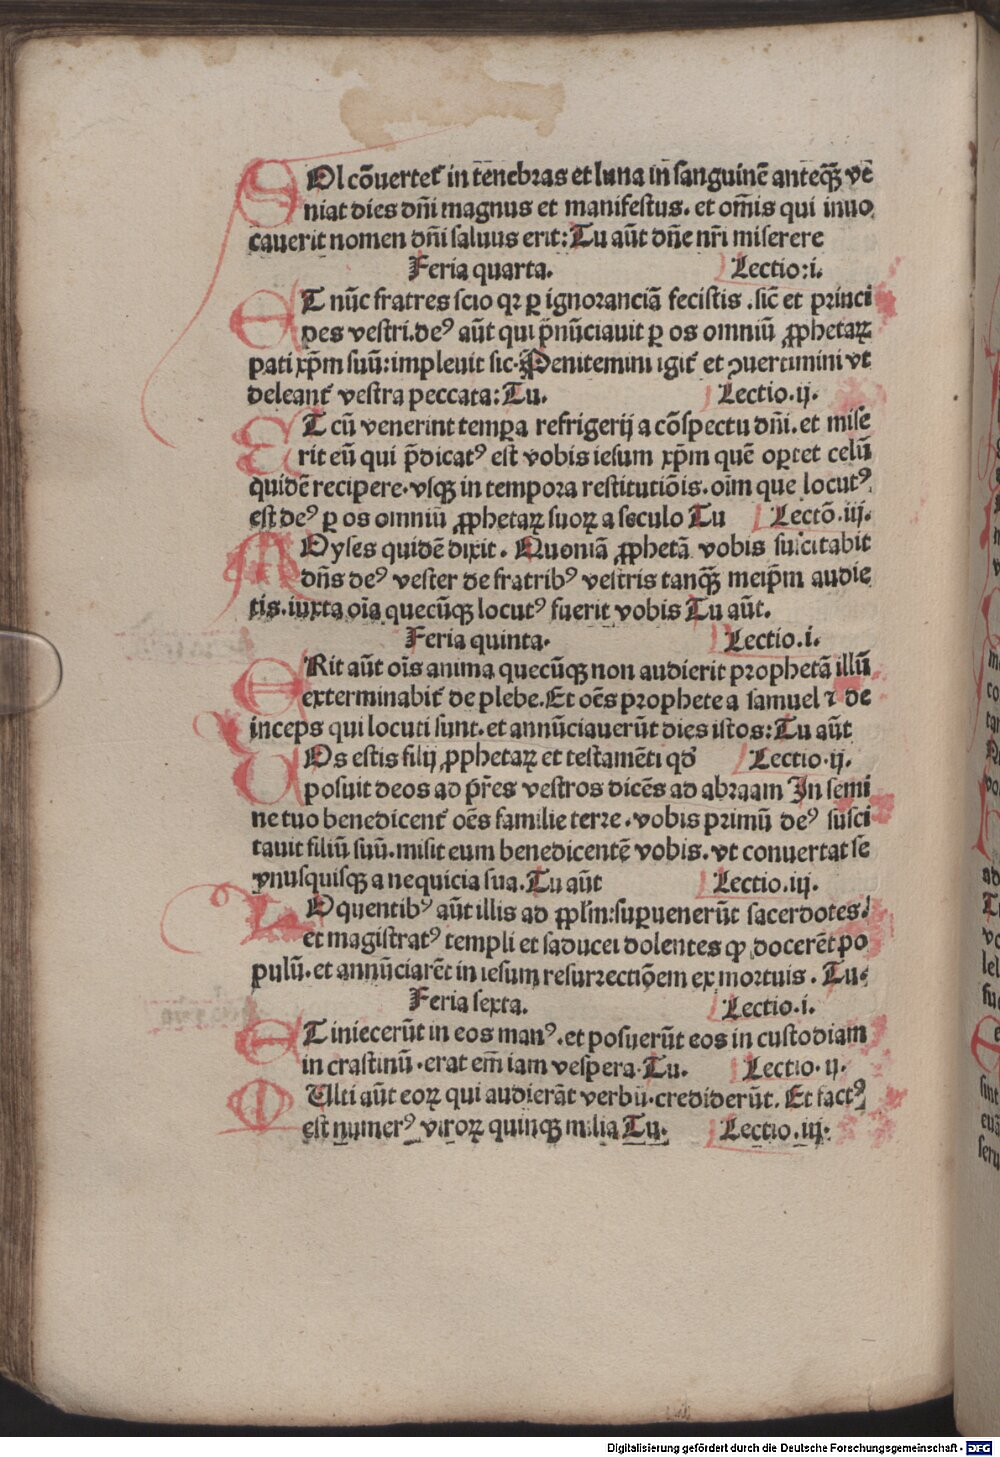 SOl cõuertet᷑ in tenebras et luna in sanguinẽ anteqꝫ̃ vẽ
niat dies dñi magnus et manifestus. et om̃is qui inuo
cauerit nomen dñi saluus erit: Tu aũt dñe nr̃i miserere
Feria quarta. Lectio: i.
ET nũc fratres scio qꝛ ꝑ ignoranciã fecistis . sic̃ et princi
pes vestri. deꝰ aũt qui p̃nũciauit ꝑ os omniũ ꝓphetaꝝ
pati xp̃m suũ: impleuit sic. Penitemini igit᷑ et ꝯuertimini vt
deleant᷑ vestra peccata: Tu. Lectio. ij.
ET cũ venerint tempꝑa refrigerij a cõspectu dñi. et mise
rit eũ qui p̃dicatꝰ est vobis iesum xp̃m quẽ oꝑtet celũ
quidẽ recipere. vsqꝫ in tempora restitutiõis. oim̃ que locutꝰ
est deꝰ ꝑ os omniũ ꝓphetaꝝ suoꝝ a seculo Tu Lectõ. iij.
MOyses quidẽ dixit. Quoniã ꝓphetã vobis suscitabit
dñs deꝰ vester de fratribꝰ vestris tanqꝫ̃ meip̃m audie
tis. iuxta oĩa quecũqꝫ locutꝰ fuerit vobis Tu aũt.
Feria quinta. Lectio. i.
ERit aũt oĩs anima quecũqꝫ non audierit prophetã illũ
exterminabit᷑ de plebe. Et oẽs prophete a samuel ⁊ de
inceps qui locuti sunt. et annũciauerũt dies istos: Tu aũt
UOs estis filij ꝓphetaꝝ et testamẽti qd̃ Lectio. ij.
posuit deos ad pr̃es vestros dicẽs ad abraam In semi
ne tuo benedicent᷑ oẽs familie terre . vobis primũ deꝰ susci
tauit filiũ suũ. misit eum benedicentẽ vobis. vt conuertat se
vnusquisqꝫ a nequicia sua. Tu aũt Lectio. iij.
LOquentibꝰ aũt illis ad ꝓpl̃m: suꝑuenerũt sacerdotes.
et magistratꝰ templi et saducei dolentes qꝙ docerẽt po
pulũ. et annũciarẽt in iesum resurrectiõem ex mortuis . Tu.
Feria sexta. Lectio. i.
ET iniecerũt in eos manꝰ. et posuerũt eos in custodiam
in crastinũ . erat em̃ iam vespera. Tu. Lectio. ij.
MUlti aũt eoꝝ qui audierãt verbũ. crediderũt. Et factꝰ
est numerꝰ viroꝝ quinqꝫ milia Tu. Lectio. iij.
Digitalisierung gefördert durch die Deutsche Forschungsgemeinschaft - DFG